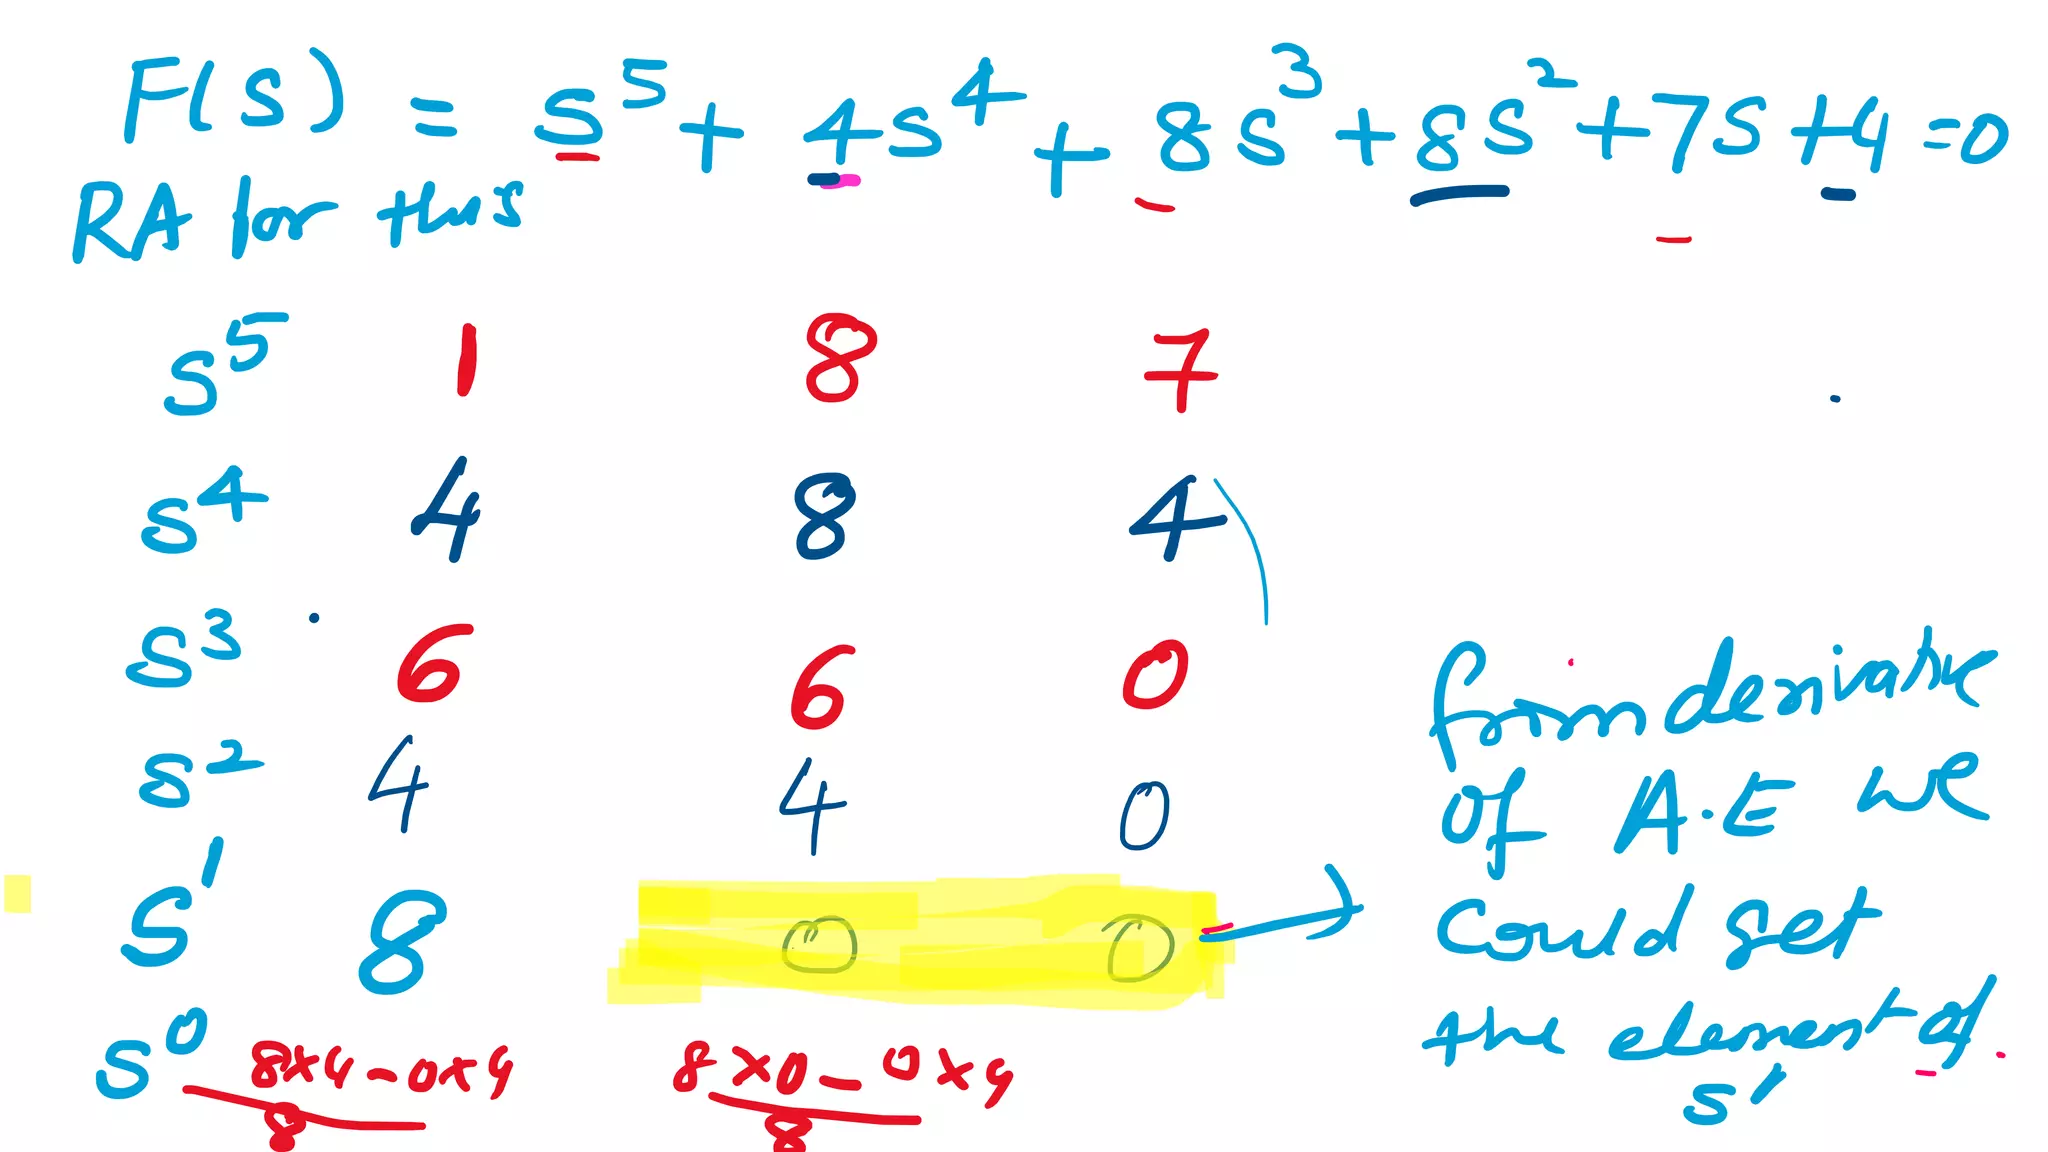 F(S) = S⁵ + 4S⁴ + 8S³ + 8S² + 7S + 4 = 0
RA for this
S⁵ 1 8 7
S⁴ 4 8 4
S³ 6 6 0
S² 4 4 0
S¹ 8 0 0
S⁰ 8×4-0×4/8 8×0-0×4/8
from derivative
of A.E we
could get
the element of.
S¹